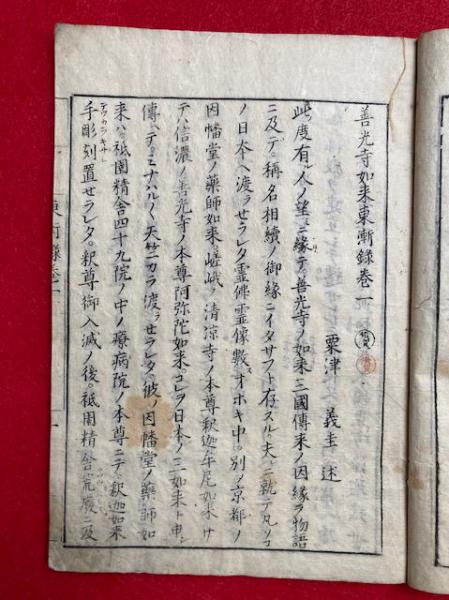 善光寺如来東漸録巻一
粟津 義圭 述
此度有ル人ノ望ミニ縁テ善光寺ノ如来三國傳来ノ因縁ヲ物語
ニ及デ稱名相續ノ御縁ニイタサフト存スル夫ニ就テ凡ソコ
ノ日本ヘ渡ラセラレタ霊佛霊像數オホキ中ニ別ノ京都ノ
因幡堂ノ藥師如来嵯峨ノ清凉寺ノ本尊釈迦牟尼如来サ
テハ信濃ノ善光寺ノ本尊阿弥陀如来コレヲ日本ノ三如来ト申シ
傳ヘテミナハルハル天竺カラ渡ラセラレタ彼ノ因幡堂ノ藥師如
来ハ祇園精舎四十九院ノ中ノ療病院ノ本尊ニテ釈迦如来
手彫刻置セラレタ釈尊御入滅ノ後祇園精舎荒廢ニ及